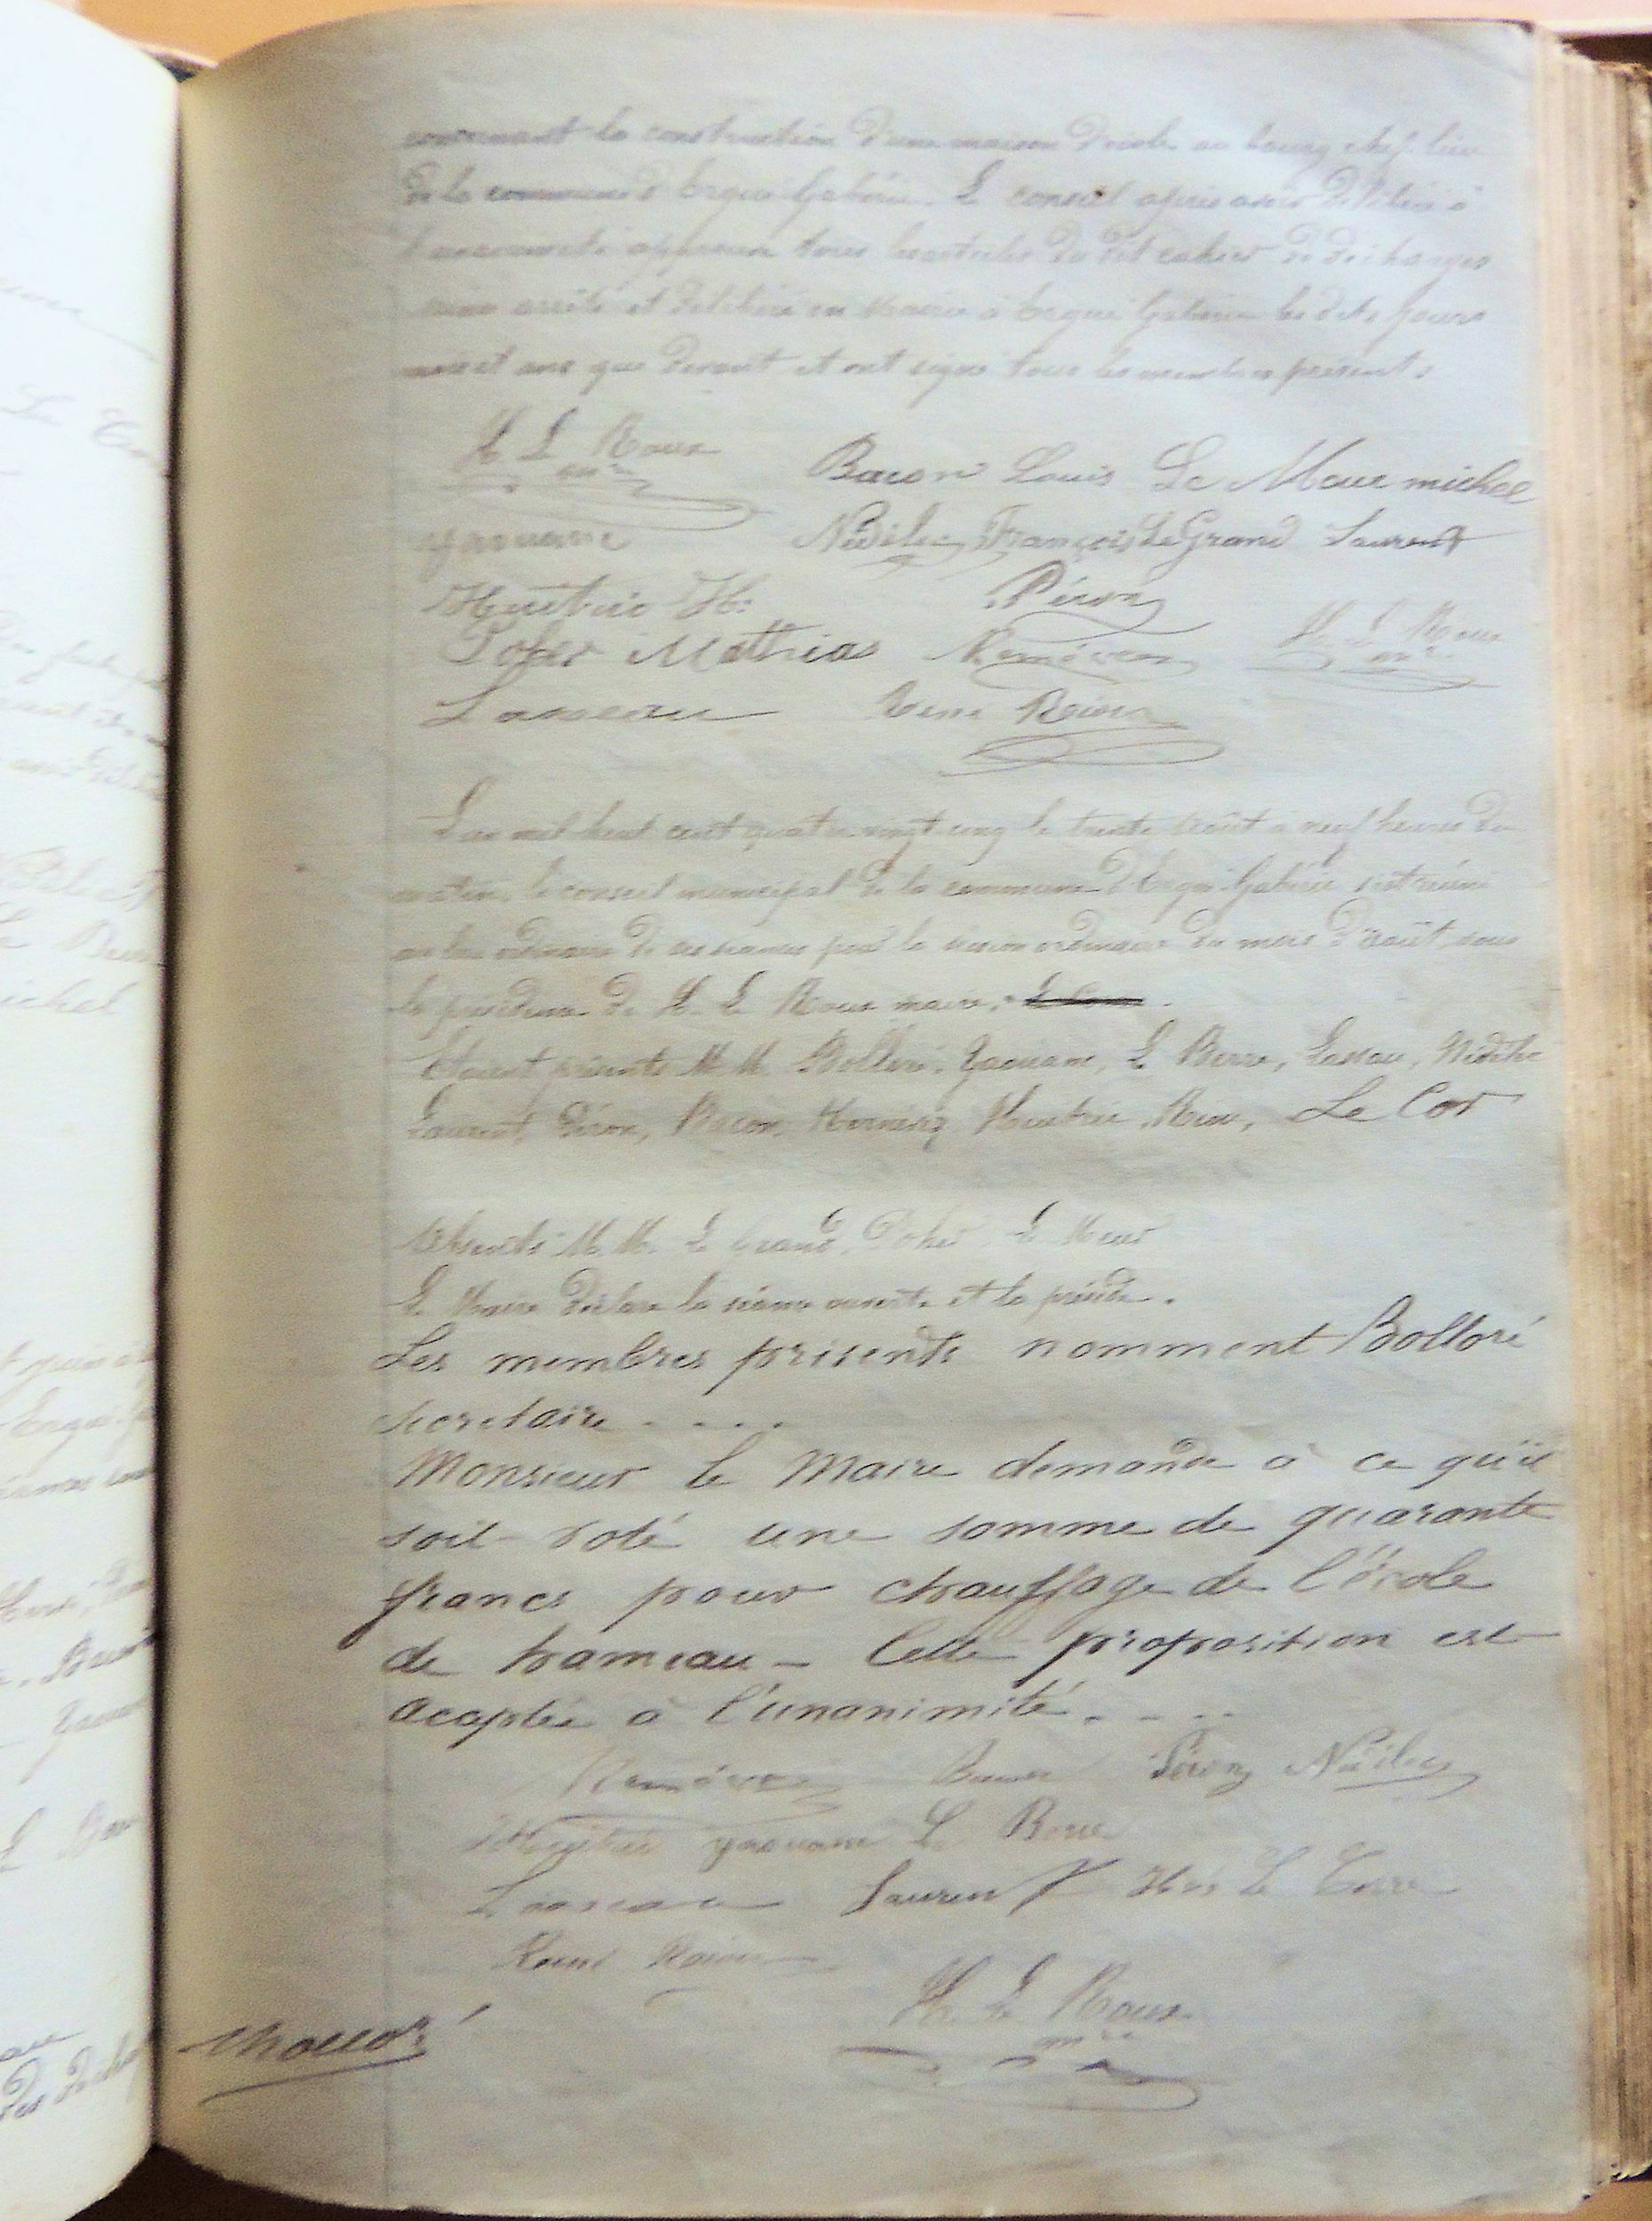 concernant la construction d'une maison d'école au bourg chef lieu
de la commune d'Ergué-Gabéric. Le conseil après avoir délibéré à
l'unanimité approuve tous les articles du dit cahier de charges
arrêté et délibéré en Mairie à Ergué Gabéric les dits jours
mois et ans que devant et ont signé tous les membres présents.
H Le Roux
Bacon Louis Le Meur michel
yaouanc Nédélec François Le Grand Laurent
Huitric H. Péron
Poher Mathias H Le Roux
Lasseau René Riou
L'an mil huit cent quatre vingt cinq le trente Août à neuf heures du
matin, le conseil municipal de la commune d'Ergué-Gabéric s'est réuni
au lieu ordinaire de ses séances pour la session ordinaire du mois d'août sous
la présidence de H. Le Roux maire.
Etaient présents M.M. Bolloré, Yaouanc, Le Berre, Lasseau, Nédélec
Laurent, Péron, Bacon, Huitric, Riou, Le Cor
Absents M.M. Le Grand, Poher, Le Meur
Le Maire déclare la séance ouverte et la préside.
Les membres prisents nomment Bolloré
secretaire - - - -
Monsieur le Maire demande à ce qu'il
soit voté une somme de quarante
francs pour chauffage de l'école
de hameau - Cette proposition est
acaptée à l'unanimité. - - -
Bacon Péron Nédélec
Huitric yaouanc Le Berre
Lasseau Laurent
René Riou
H. Le Roux